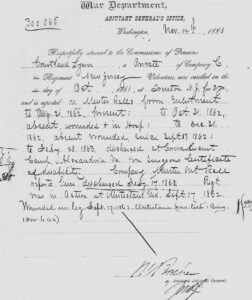 War Department,
ADJUTANT GENERAL'S OFFICE,
300,565
Washington, Nov. 14, 1883
Respectfully returned to the Commissioner of Pensions.
Courtland Lyon, a Private of Company C,
Regiment New Jersey Volunteers, was enrolled on the
day of Oct, 1861, at Trenton N.J. for 3 yrs
and is reported on Muster Rolls from enrolment
to Aug. 31, 1862, present: to Oct. 31, 1862,
absent, wounded & in Hosp: to Dec. 31
1862, absent wounded since Sept 17, 1862:
to Feby. 28, 1863, discharged at Convalescent
Camp, Alexandria Va on Surgeons Certificate
of disability. Company Muster out Roll
reports him discharged Feby. 17, 1863. Regt.
was in action at Antietam Md. Sept. 17, 1862
Wounded in leg Sept. 17, 1862, Antietam
Assistant Adjutant General.